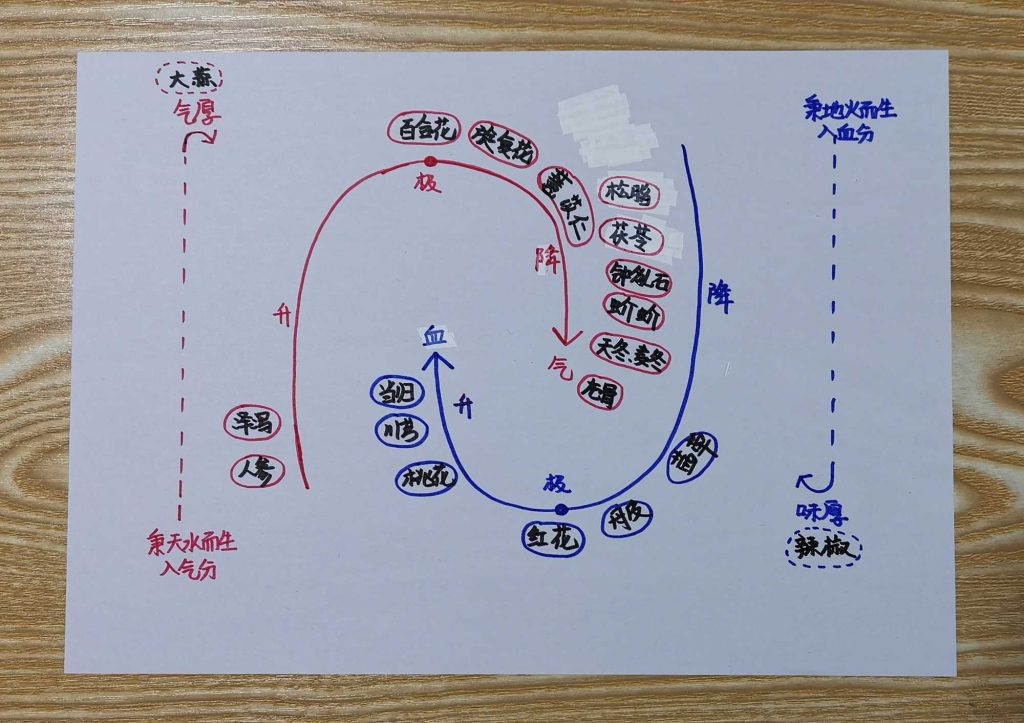 大蒜
气厚
百合花
旋复花
薏苡仁
极
松脂
茯苓
降
钟乳石
升
天冬.麦冬
气
龙骨
泽泻
人参
秉天水而生
入气分
秉地火而生
入血分
降
血
当归
升
川芎
桃花
极
红花
丹皮
味厚
辣椒